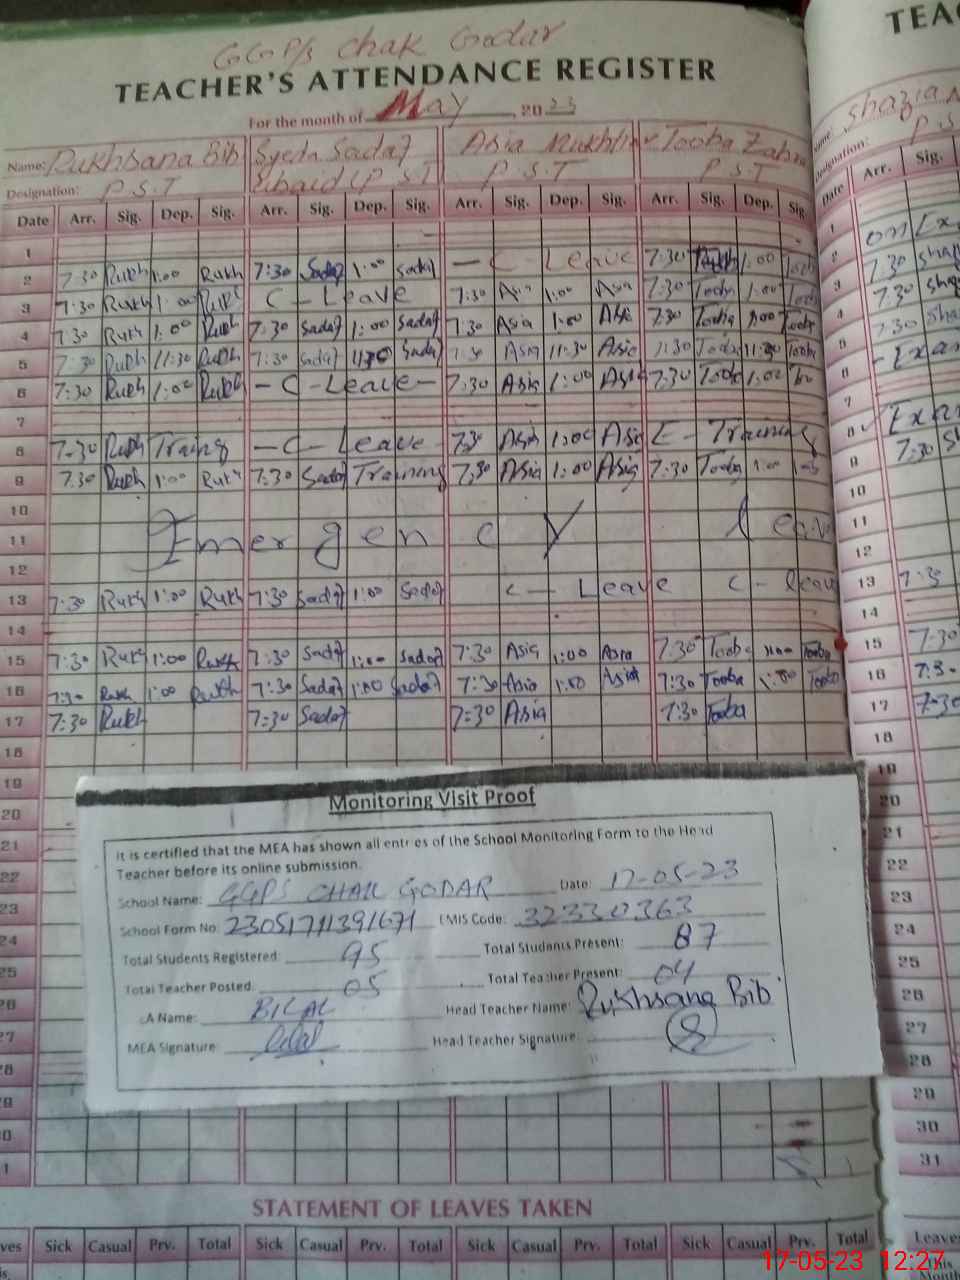 GGP/s Chak Godar
TEACHER'S ATTENDANCE REGISTER
For the month of May, 2023
Name: Rukhsana Bib Syeda Sadaf Asia Mukhtar Tooba Zahra
Designation: P.S.T Ubaid (P.S.T P.S.T P.S.T
Date Arr. Sig. Dep. Sig. Arr. Sig. Dep. Sig. Arr. Sig. Dep. Sig. Arr. Sig. Dep. Sig.
1
2 7:30 Rukh 1:00 Rukh 7:30 Sadaf 1:00 Sadaf — C - Leave 7:30 1:00
3 7:30 Rukh 1:00 Rukh C - Leave 7:30 Asia 1:00 Asia 7:30 Tooba 1:00
4 7:30 Rukh 1:00 Rukh 7:30 Sadaf 1:00 Sadaf 7:30 Asia 1:00 Asia 7:30 Tooba 1:00 Tooba
5 7:30 Rukh 11:30 Rukh 7:30 Sadaf 11:30 Sadaf 7:30 Asia 11:30 Asia 7:30 Tooba 11:30 Tooba
6 7:30 Rukh 1:00 Rukh - C - Leave - 7:30 Asia 1:00 Asia 7:30 Tooba 1:00
7
8 7:30 Rukh Traing - C - Leave 7:30 Asia 1:00 Asia E - Training
9 7:30 Rukh 1:00 Rukh 7:30 Sadaf Training 7:30 Asia 1:00 Asia 7:30 Tooba 1:00
10
11 Emergency Leave
12
13 7:30 Rukh 1:00 Rukh 7:30 Sadaf 1:00 Sadaf C - Leave C - Leave
14
15 7:30 Rukh 1:00 Rukh 7:30 Sadaf 1:00 Sadaf 7:30 Asia 1:00 Asia 7:30 Tooba 1:00 Tooba
16 7:30 Rukh 1:00 Rukh 7:30 Sadaf 1:00 Sadaf 7:30 Asia 1:00 Asia 7:30 Tooba 1:00 Tooba
17 7:30 Rukh 7:30 Sadaf 7:30 Asia 7:30 Tooba
18
19
20
21
22
23
24
25
26
27
28
29
30
31
Monitoring Visit Proof
It is certified that the MEA has shown all entries of the School Monitoring Form to the Head
Teacher before its online submission.
School Name: GGPS CHAK GODAR Date: 17-05-23
School Form No: 23051711391671 EMIS Code: 32330363
Total Students Registered: 95 Total Students Present: 87
Total Teacher Posted: 05 Total Teacher Present: 04
EA Name: BILAL Head Teacher Name: Rukhsana Bib
MEA Signature: Bilal Head Teacher Signature:
STATEMENT OF LEAVES TAKEN
ves Sick Casual Prv. Total Sick Casual Prv. Total Sick Casual Prv. Total Sick Casual Prv. Total
TEA
Shazia
P.S
Designation:
Date Arr. Sig.
1 on Ex
2 7:30 Sha
3 7:30 Sha
4 7:30 Sha
5 - Exa
6
7
8 Exa
9 7:30 Sh
10
11
12
13 7:30
14
15 7:30
16 7:30
17 7:30
18
19
20
21
22
23
24
25
26
27
28
29
30
31
Leaves
This
Month
17-05-23 12:27